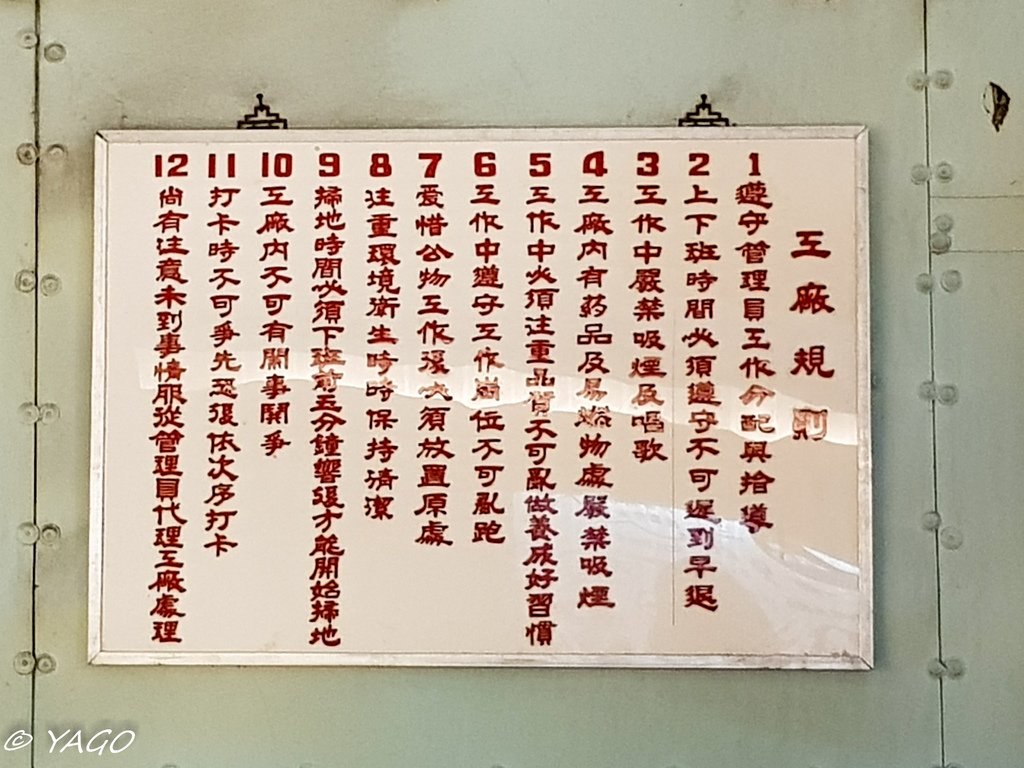 工廠規則
1 遵守管理員工作分配與指導
2 上下班時間必須遵守不可遲到早退
3 工作中嚴禁吸煙及唱歌
4 工廠內有葯品及易燃物處嚴禁吸煙
5 工作中必須注重品質不可亂做養成好習慣
6 工作中遵守工作崗位不可亂跑
7 愛惜公物工作後必須放置原處
8 注重環境衛生時時保持清潔
9 掃地時間必須下班前五分鐘響後才能開始掃地
10 工廠內不可有鬧事鬪爭
11 打卡時不可爭先恐後依次序打卡
12 尚有注意未到事情服從管理員代理工廠處理
© YAGO